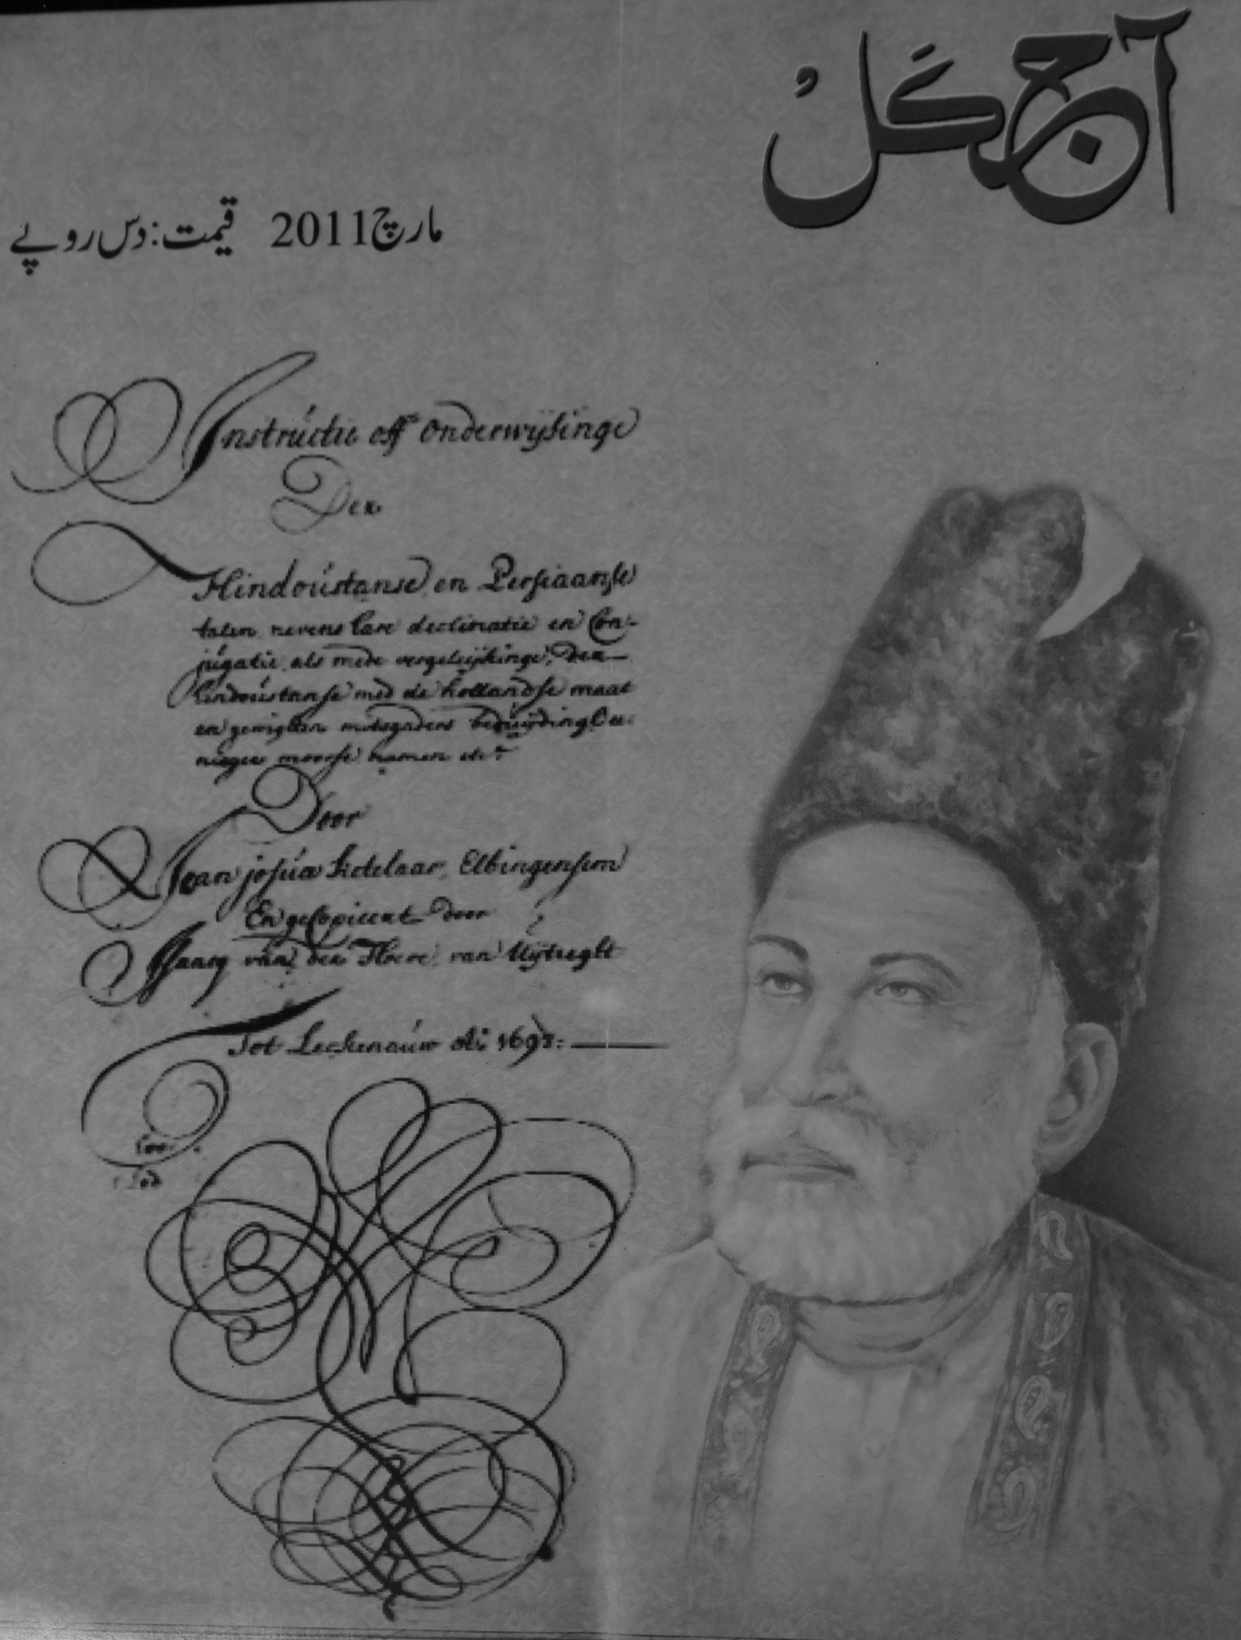 آج کل
مارچ 2011 قیمت: دس روپے
Instructie off Onderwijsinge
Der
Hindoústanse en Persiaanse
talen nevens hare declinatie en Con-
júgatie, als mede vergeleijkinge, der
hindoústanse med de hollandse maat
en gewigten mitsgaders beduijdinge
moorse namen etc.
Door
Joan josúa Ketelaar, Elbingensem
En gecopieert door
Isaacq van der Hoeve, van Uijtreght
Tot Leckenaúw Ao 1698: